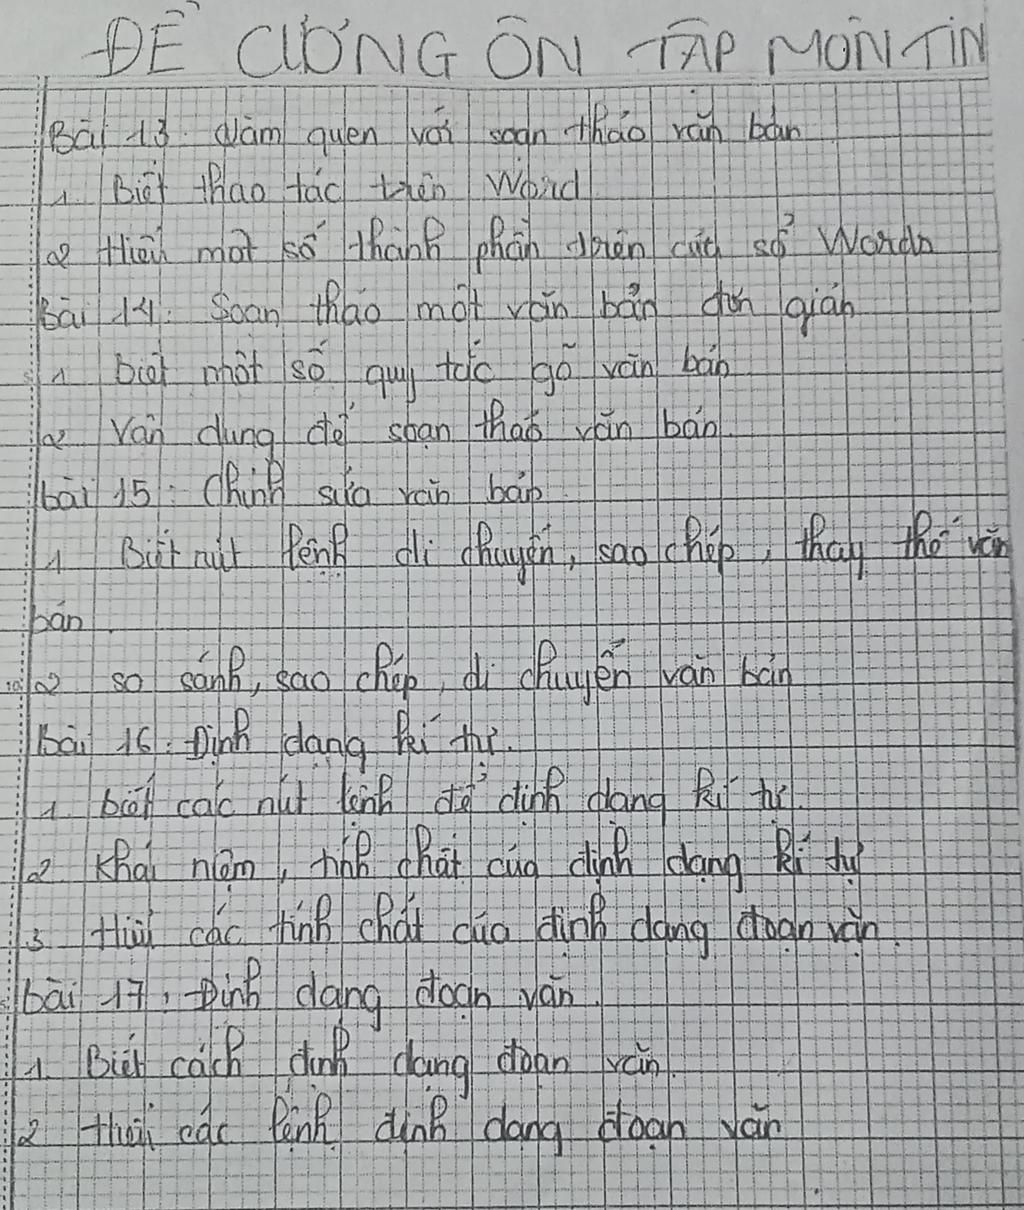 ĐỀ CƯƠNG ÔN TẬP MÔN TIN
Bài 13. Làm quen với soạn thảo văn bản
1. Biết thao tác trên Word
2 Hiểu một số thành phần trên cửa sổ Word
Bài 14: Soạn thảo một văn bản đơn giản
1 biết một số quy tắc gõ văn bản
2 Vận dụng để soạn thảo văn bản
bài 15: Chỉnh sửa văn bản
1 Biết nút lệnh di chuyển, sao chép, thay thế văn
bản.
2 so sánh, sao chép, di chuyển văn bản
bài 16: Định dạng kí tự.
1. biết các nút lệnh để định dạng kí tự.
2 Khái niệm, tính chất của định dạng kí tự
3 Hiểu các tính chất của định dạng đoạn văn.
bài 17: Định dạng đoạn văn.
1. Biết cách định dạng đoạn văn.
2 Hiểu các lệnh định dạng đoạn văn